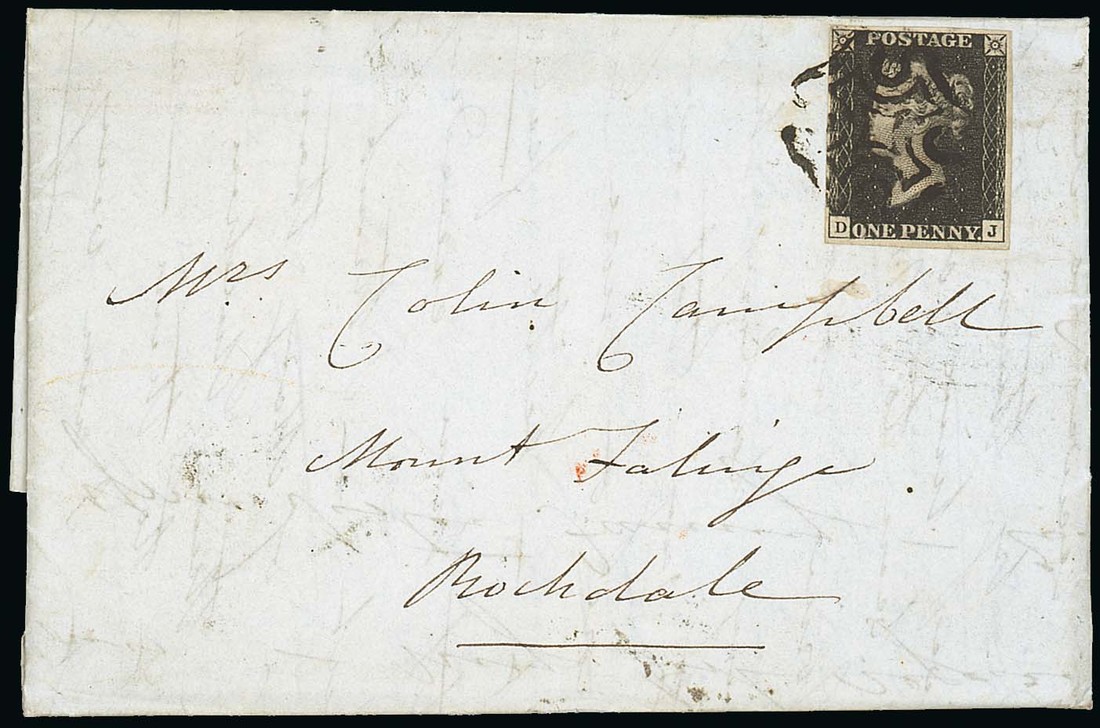 POSTAGE
D ONE PENNY. J
Mrs Colin Campbell
Mount Falinge.
Rochdale